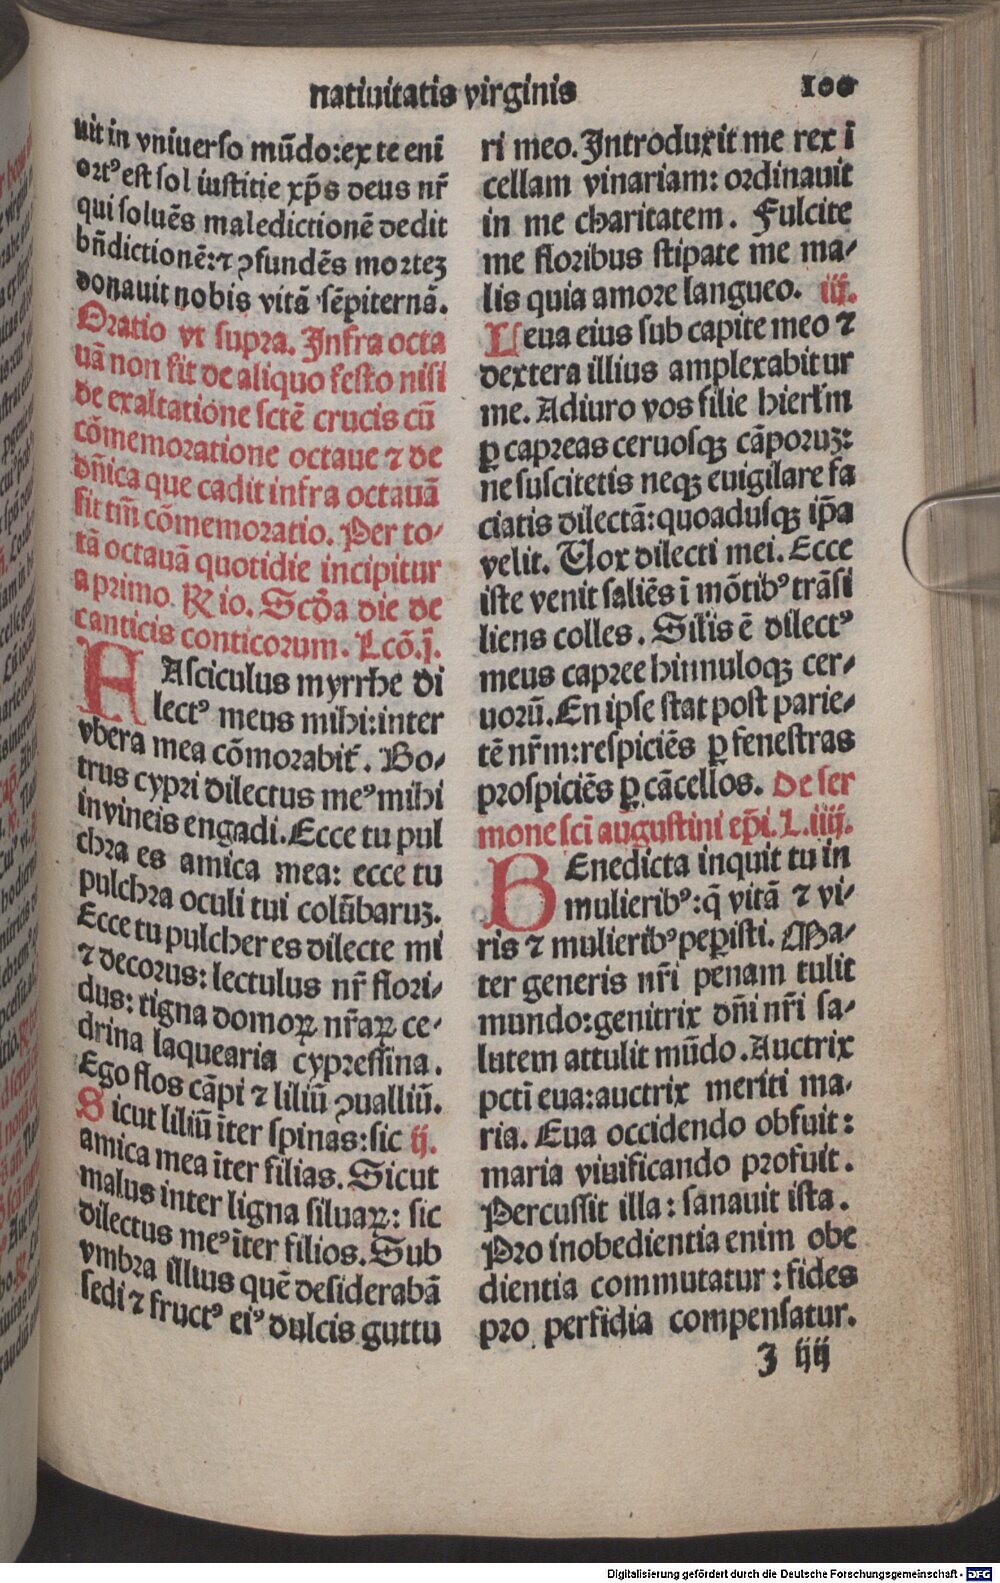 natiuitatis virginis
100
uit in vniuerso mūdo:ex te eni
ortꝰ est sol iustitie xp̄s deus nr̄
qui soluēs maledictionē dedit
bn̄dictionē:⁊ ꝯfundēs morteʒ
donauit nobis vitā sēpiternā.
Oratio vt supra. Infra octa
uā non fit de aliquo festo nisi
de exaltatione sctē crucis cū
cōmemoratione octaue ⁊ de
dn̄ica que cadit infra octauā
fit tm̄ cōmemoratio. Per to⸗
tā octauā quotidie incipitur
a primo ℟ io. Scd̄a die de
canticis conticorum. Lcō.j.
FAsciculus myrrhe di
lectꝰ meus mihi:inter
vbera mea cōmorabit᷑. Bo⸗
trus cypri dilectus meꝰ mihi
in vineis engadi. Ecce tu pul
chra es amica mea: ecce tu
pulchra oculi tui colūbaruʒ.
Ecce tu pulcher es dilecte mi
⁊ decorus: lectulus nr̄ flori⸗
dus: tigna domoꝝ nr̄aꝝ ce⸗
drina laquearia cypressina.
Ego flos cāpi ⁊ liliū ꝯualliū.
Sicut liliū īter spinas:sic ij.
amica mea īter filias. Sicut
malus inter ligna siluaꝝ: sic
dilectus meꝰ īter filios. Sub
vmbra illius quē desiderabā
sedi ⁊ fructꝰ eiꝰ dulcis guttu
ri meo. Introduxit me rex ī
cellam vinariam: ordinauit
in me charitatem. Fulcite
me floribus stipate me ma⸗
lis quia amore langueo. iij.
Leua eius sub capite meo ⁊
dextera illius amplexabitur
me. Adiuro vos filie hierłm
ꝑ capreas ceruosqꝫ cāporuʒ:
ne suscitetis neqꝫ euigilare fa
ciatis dilectā:quoadusqꝫ ip̄a
velit. Vox dilecti mei. Ecce
iste venit saliēs ī mōtibꝰ trāsi
liens colles. Silis ē dilectꝰ
meus capree hinnuloqꝫ cer⸗
uorū. En ipse stat post parie⸗
tē nr̄m:respiciēs ꝑ fenestras
prospiciēs ꝑ cācellos. De ser
mone scī augustini ep̄i. L.iiij.
BEnedicta inquit tu in
mulieribꝰ:q̄ vitā ⁊ vi⸗
ris ⁊ mulieribꝰ peꝑisti. Ma⸗
ter generis nr̄i penam tulit
mundo:genitrix dn̄i nr̄i sa⸗
lutem attulit mūdo. Auctrix
pctī eua:auctrix meriti ma⸗
ria. Eua occidendo obfuit:
maria viuificando profuit.
Percussit illa: sanauit ista.
Pro inobedientia enim obe
dientia commutatur: fides
pro perfidia compensatur.
З iiij
Digitalisierung gefördert durch die Deutsche Forschungsgemeinschaft - DFG